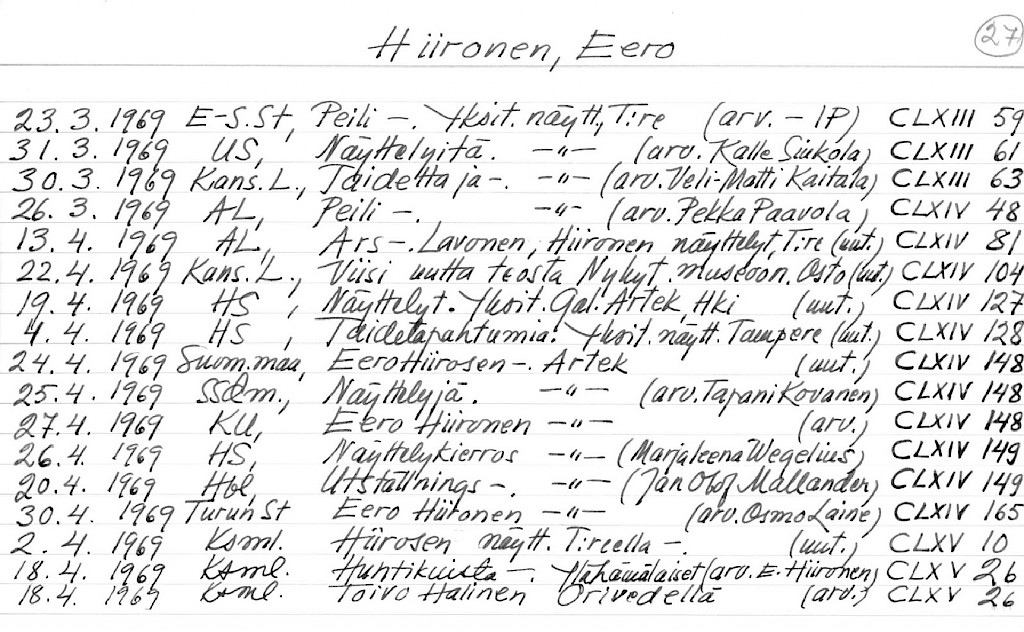 Hiironen, Eero 27
23. 3. 1969 E-S.St, Peili -. Yksit. näytt, T:re (arv. - IP) CLXIII 59
31. 3. 1969 US, Näyttelyitä. -"- (arv. Kalle Siukola) CLXIII 61
30. 3. 1969 Kans. L., Taidetta ja -. -"- (arv. Veli-Matti Kaitala) CLXIII 63
26. 3. 1969 AL, Peili -. -"- (arv. Pekka Paavola) CLXIV 48
13. 4. 1969 AL, Ars -. Lavonen, Hiironen näyttelyt, T:re (uut.) CLXIV 81
22. 4. 1969 Kans. L., Viisi uutta teosta Nykyt. museoon. Osto (uut.) CLXIV 104
19. 4. 1969 HS, Näyttelyt. Yksit. Gal. Artek, Hki (uut.) CLXIV 127
4. 4. 1969 HS, Taidetapahtumia. Yksit. näytt. Tampere (uut.) CLXIV 128
24. 4. 1969 Suom.maa, Eero Hiirosen -. Artek (uut.) CLXIV 148
25. 4. 1969 SSdm., Näyttelyjä. -"- (arv. Tapani Kovanen) CLXIV 148
27. 4. 1969 KU, Eero Hiironen -"- (arv.) CLXIV 148
26. 4. 1969 HS, Näyttelykierros -"- (Marjaleena Wegelius) CLXIV 149
20. 4. 1969 Hbl, Utställnings -. -"- (Jan Olof Mallander) CLXIV 149
30. 4. 1969 Turun St Eero Hiironen -"- (arv. Osmo Laine) CLXIV 165
2. 4. 1969 Ksml. Hiirosen näytt. T:reella -. (uut.) CLXV 10
18. 4. 1969 Ksml. Huhtikuista -. Ylähämäläiset (arv. E. Hiironen) CLXV 26
18. 4. 1969 Ksml. Toivo Halinen Orivedellä (arv.) CLXV 26